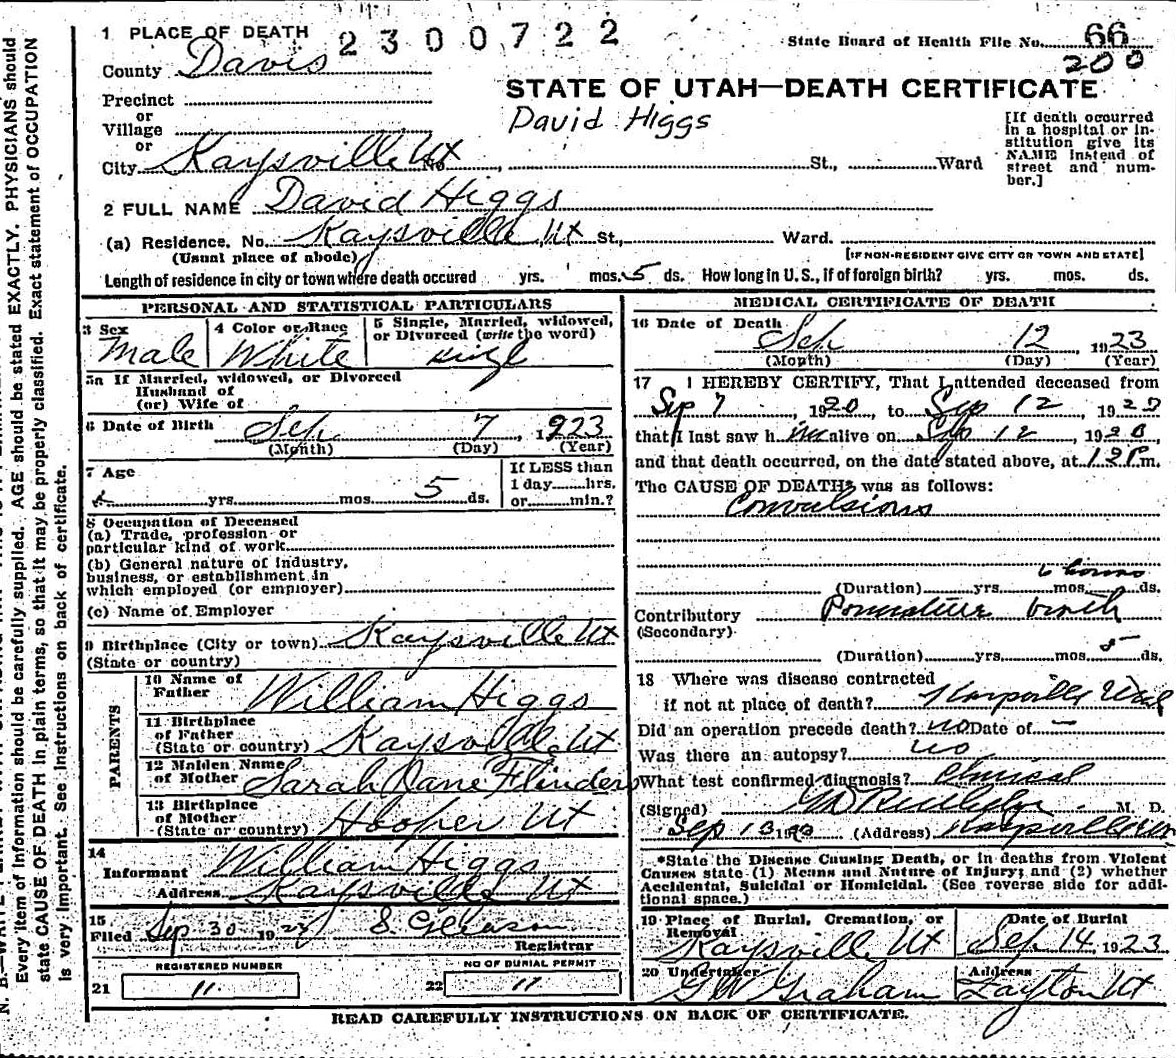 1 PLACE OF DEATH 2300722
State Board of Health File No. 66
200
County Davis
STATE OF UTAH—DEATH CERTIFICATE
Precinct
David Higgs
or
Village
or
City Kaysville Ut No. , St., Ward
[If death occurred
in a hospital or in-
stitution give its
NAME instead of
street and num-
ber.]
2 FULL NAME David Higgs
(a) Residence. No. Kaysville Ut St., Ward.
(Usual place of abode) [IF NON-RESIDENT GIVE CITY OR TOWN AND STATE]
Length of residence in city or town where death occured yrs. mos. 5 ds. How long in U. S., if of foreign birth? yrs. mos. ds.
PERSONAL AND STATISTICAL PARTICULARS
3 Sex Male
4 Color or Race White
5 Single, Married, widowed,
or Divorced (write the word)
singl
5a If Married, widowed, or Divorced
Husband of
(or) Wife of
6 Date of Birth Sep 7, 1923
(Month) (Day) (Year)
7 Age yrs. mos. 5 ds.
If LESS than
1 day hrs.
or min.?
8 Occupation of Deceased
(a) Trade, profession or
particular kind of work
(b) General nature of industry,
business, or establishment in
which employed (or employer)
(c) Name of Employer
9 Birthplace (City or town) Kaysville Ut
(State or country)
PARENTS
10 Name of
Father William Higgs
11 Birthplace
of Father
(State or country) Kaysville Ut
12 Maiden Name
of Mother Sarah Jane Flinders
13 Birthplace
of Mother
(State or country) Hooper Ut
14
Informant William Higgs
Address Kaysville Ut
15
Filed Sep 30 192 S. Gleason
Registrar
REGISTERED NUMBER
21 11
NO OF BURIAL PERMIT
22 11
MEDICAL CERTIFICATE OF DEATH
16 Date of Death Sep 12 1923
(Month) (Day) (Year)
17 I HEREBY CERTIFY, That I attended deceased from
Sep 7, 1920, to Sep 12, 192
that I last saw h im alive on Sep 12, 192
and that death occurred, on the date stated above, at 12 P m.
The CAUSE OF DEATH* was as follows:
Convulsions
6 hours
(Duration) yrs. mos. ds.
Contributory Premature birth
(Secondary)
(Duration) yrs. mos. 5 ds.
18 Where was disease contracted
if not at place of death? Kaysville Utah
Did an operation precede death? no Date of —
Was there an autopsy? no
What test confirmed diagnosis? Clinical
(Signed) M. D.
Sep 13 1923 (Address) Kaysville Utah
*State the Disease Causing Death, or in deaths from Violent
Causes state (1) Means and Nature of Injury; and (2) whether
Accidental, Suicidal or Homicidal. (See reverse side for addi-
tional space.)
19 Place of Burial, Cremation, or
Removal
Kaysville Ut
Date of Burial
Sep 14 1923
20 Undertaker
G W Graham
Address
Layton Ut
READ CAREFULLY INSTRUCTIONS ON BACK OF CERTIFICATE.
Every item of information should be carefully supplied. AGE should be stated EXACTLY. PHYSICIANS should
state CAUSE OF DEATH in plain terms, so that it may be properly classified. Exact statement of OCCUPATION
is very important. See instructions on back of certificate.